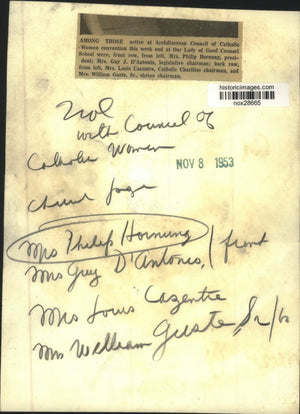 AMONG THOSE active at Archdiocesan Council of Catholic
Women convention this week end at Our Lady of Good Counsel
School were, front row, from left, Mrs. Philip Hornung, presi-
dent; Mrs. Guy J. D'Antonio, legislative chairman; back row,
from left, Mrs. Louis Cazentre, Catholic Charities chairman, and
Mrs. William Guste, Sr., shrine chairman.
historicimages.com
nox28665
with Council of
Catholic Women
NOV 8 1953
Church page
Mrs Philip Hornung
Mrs Guy D'Antonio, / front
Mrs Louis Cazentre
Mrs William Guste, Sr /